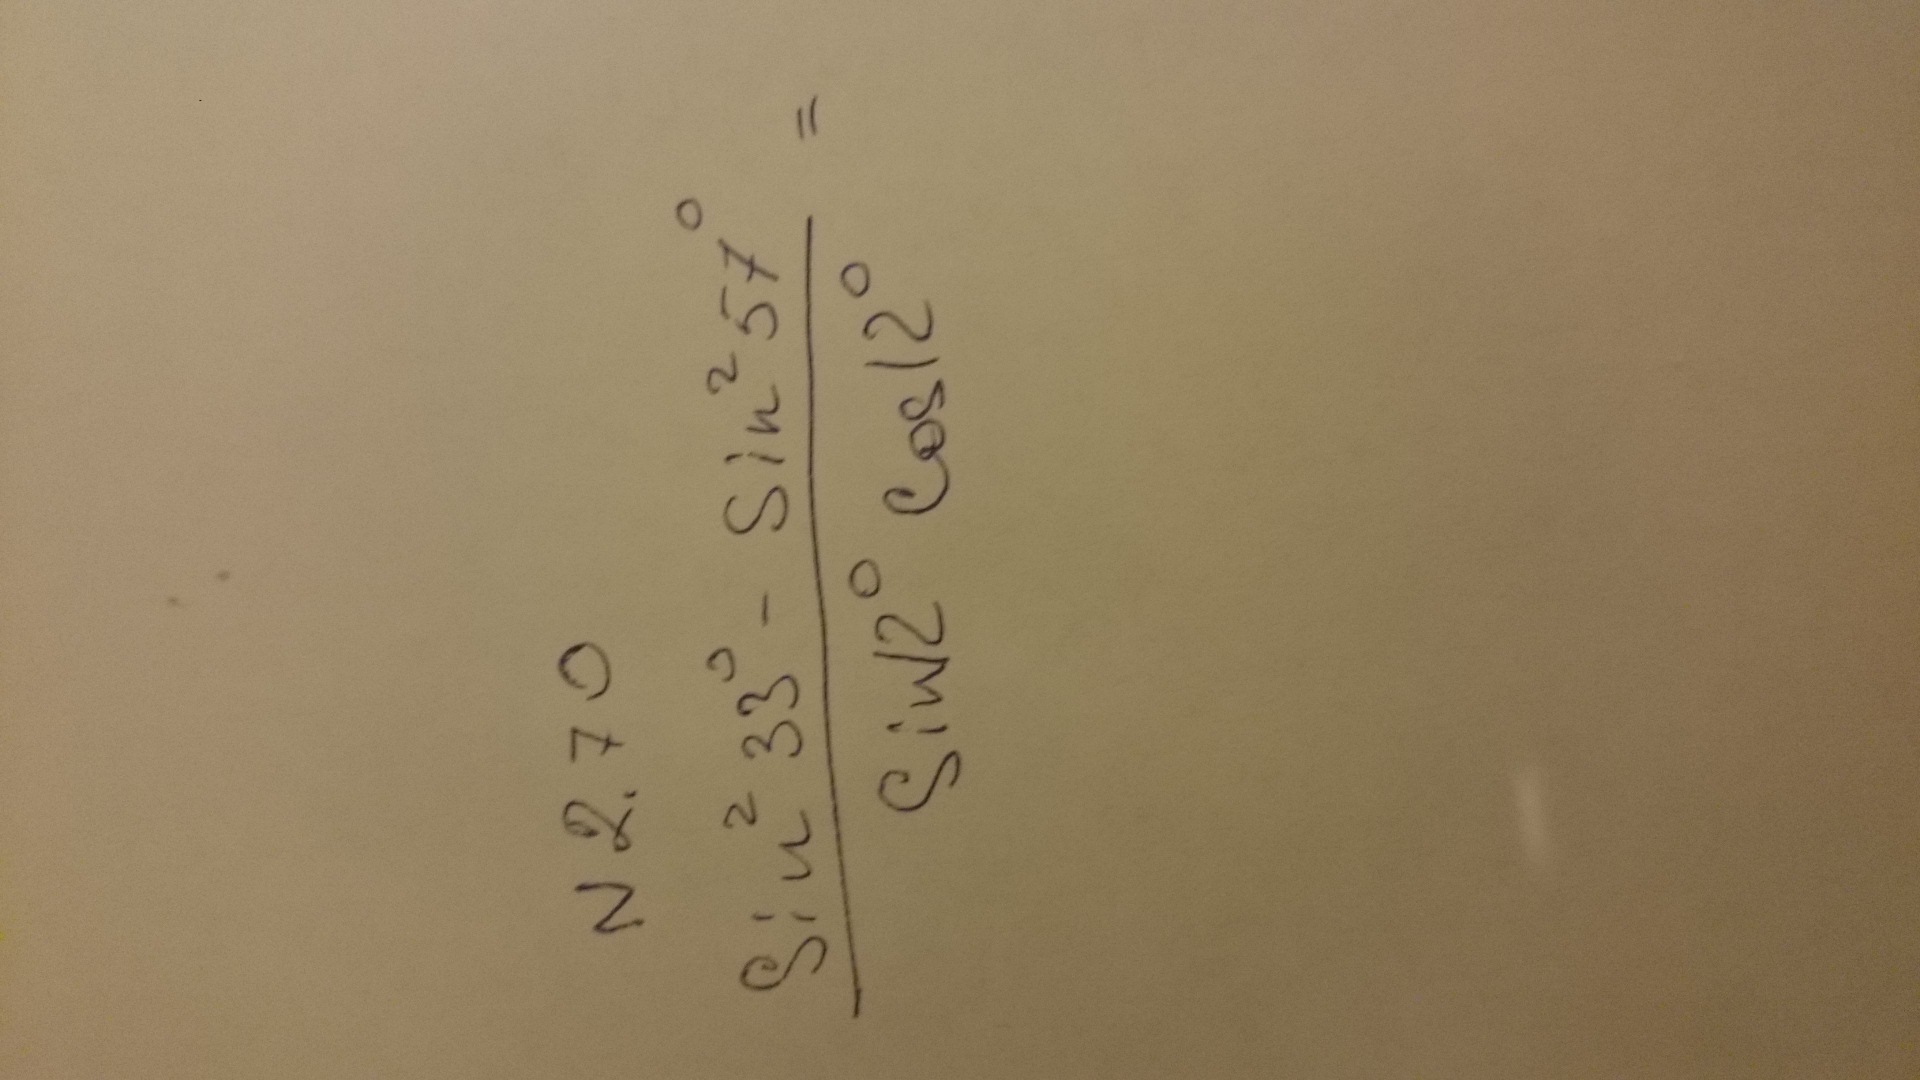 N 2.70
Sin² 33° - Sin² 57° =
Sin12° Cos12°